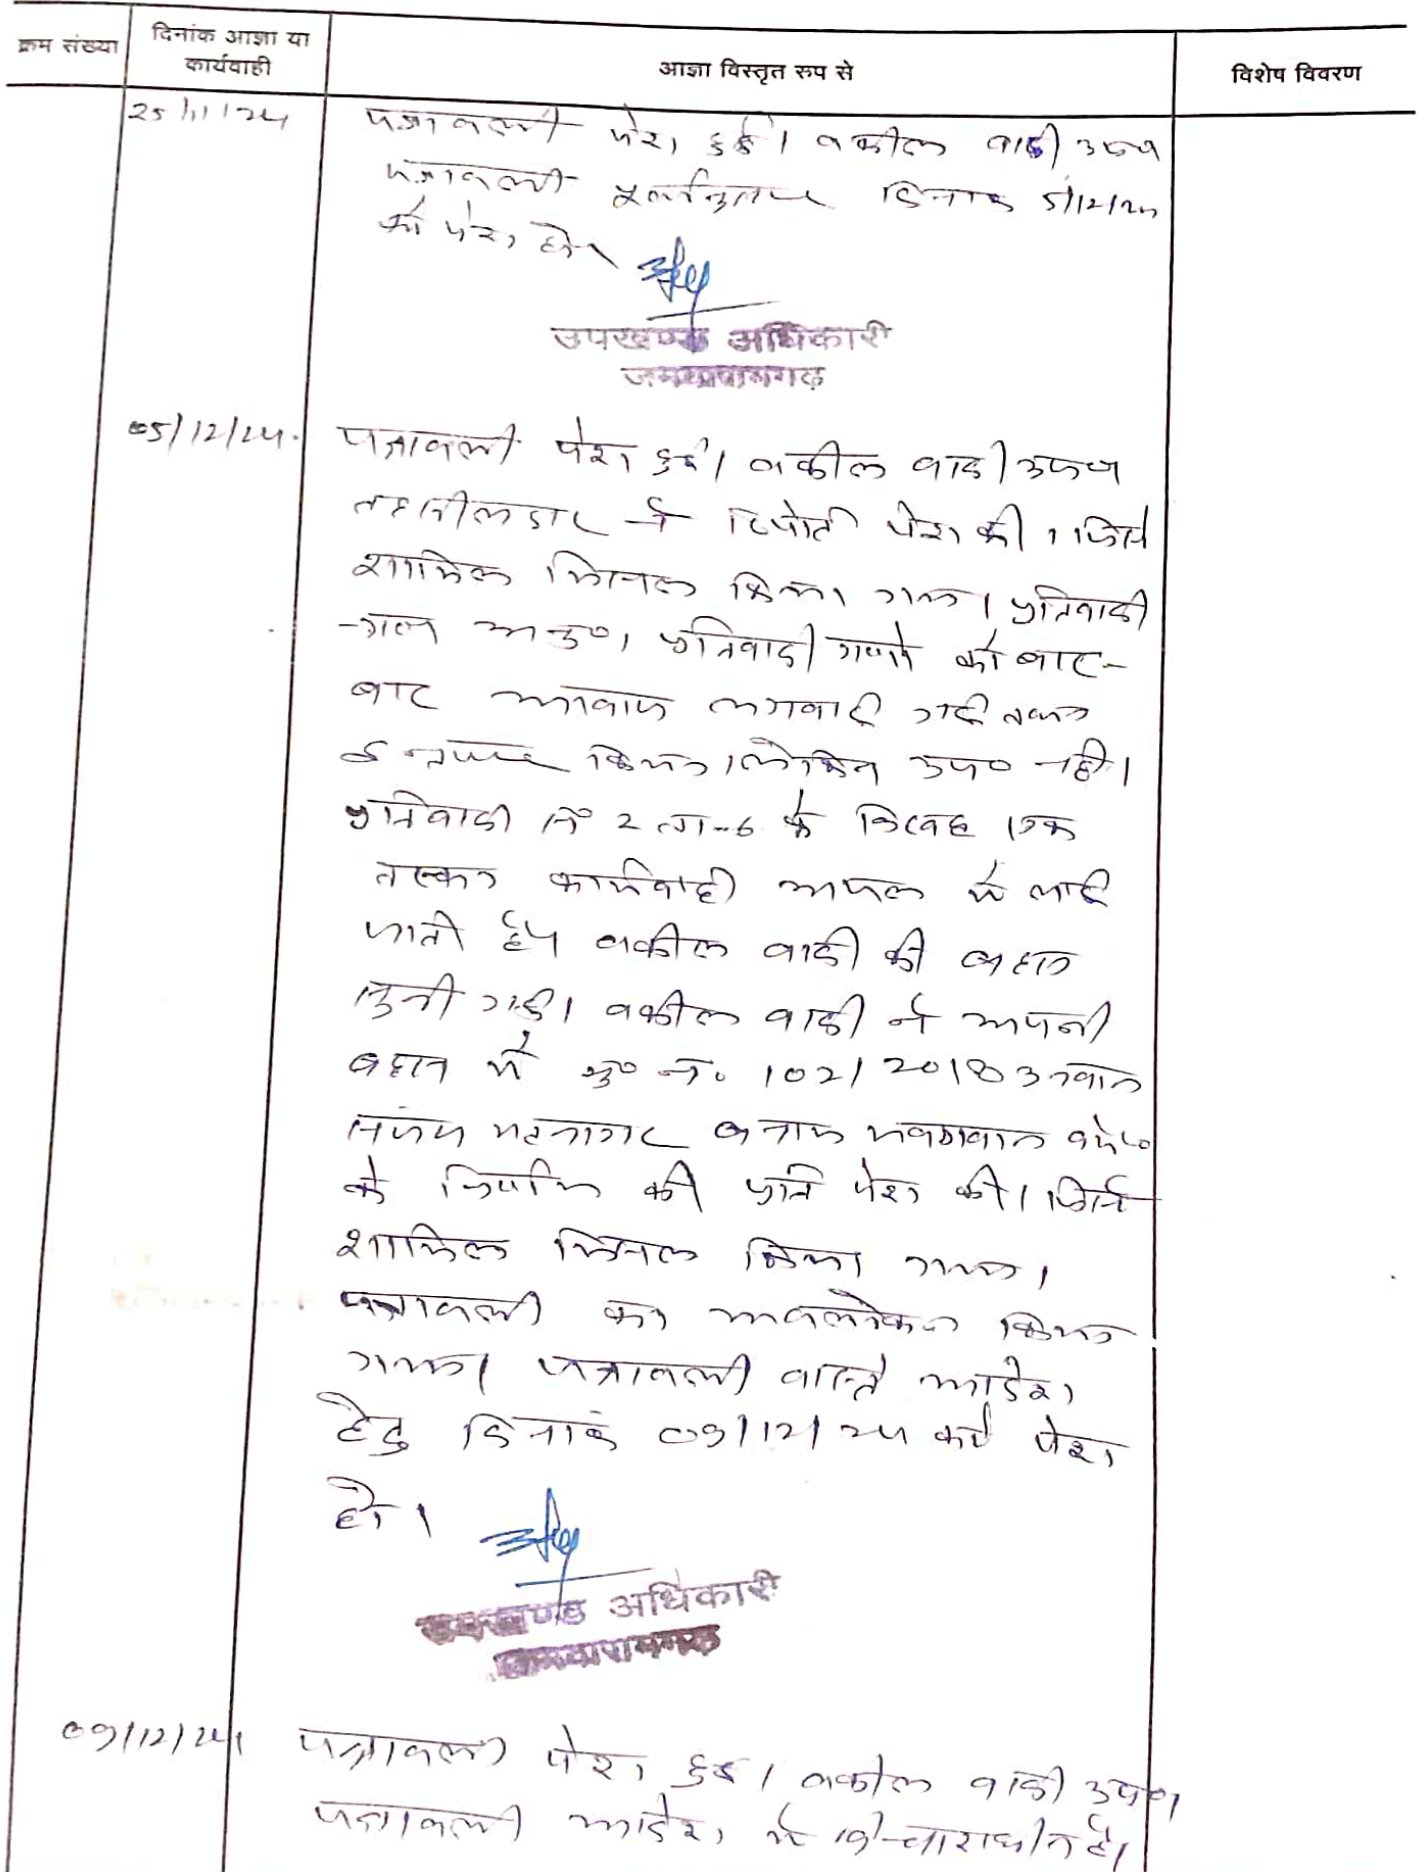 क्रम संख्या
दिनांक आज्ञा या
कार्यवाही
आज्ञा विस्तृत रूप से
विशेष विवरण
25/11/24
पत्रावली पेश हुई। वकील वादी उप०
पत्रावली दिनांक 5/12/24
को पेश हो।
उपखण्ड अधिकारी
जमवारामगढ़
05/12/24
पत्रावली पेश हुई। वकील वादी उप०
तहसीलदार ने रिपोर्ट पेश की। जिसे
शामिल मिसल किया गया। प्रतिवादी
प्रतिवादी गणो को बार-
बार आवाज लगवाई गई
इन्तजार किया। लेकिन उप० नही।
प्रतिवादी सं० 2 ता-6 के विरुद्ध एक
तरफा कार्यवाही अमल मे लाई
जाती है। वकील वादी की बहस
सुनी गई। वकील वादी ने अपनी
बहस मे मु० नं० 102/2018 उनवान
भटनागर बनाम
के निर्णय की प्रति पेश की। जिसे
शामिल मिसल किया गया।
पत्रावली का अवलोकन किया
गया। पत्रावली वास्ते आदेश
हेतु दिनांक 09/12/24 को पेश
हो।
उपखण्ड अधिकारी
जमवारामगढ़
09/12/24
पत्रावली पेश हुई। वकील वादी उप०।
पत्रावली आदेश मे विचाराधीन है।